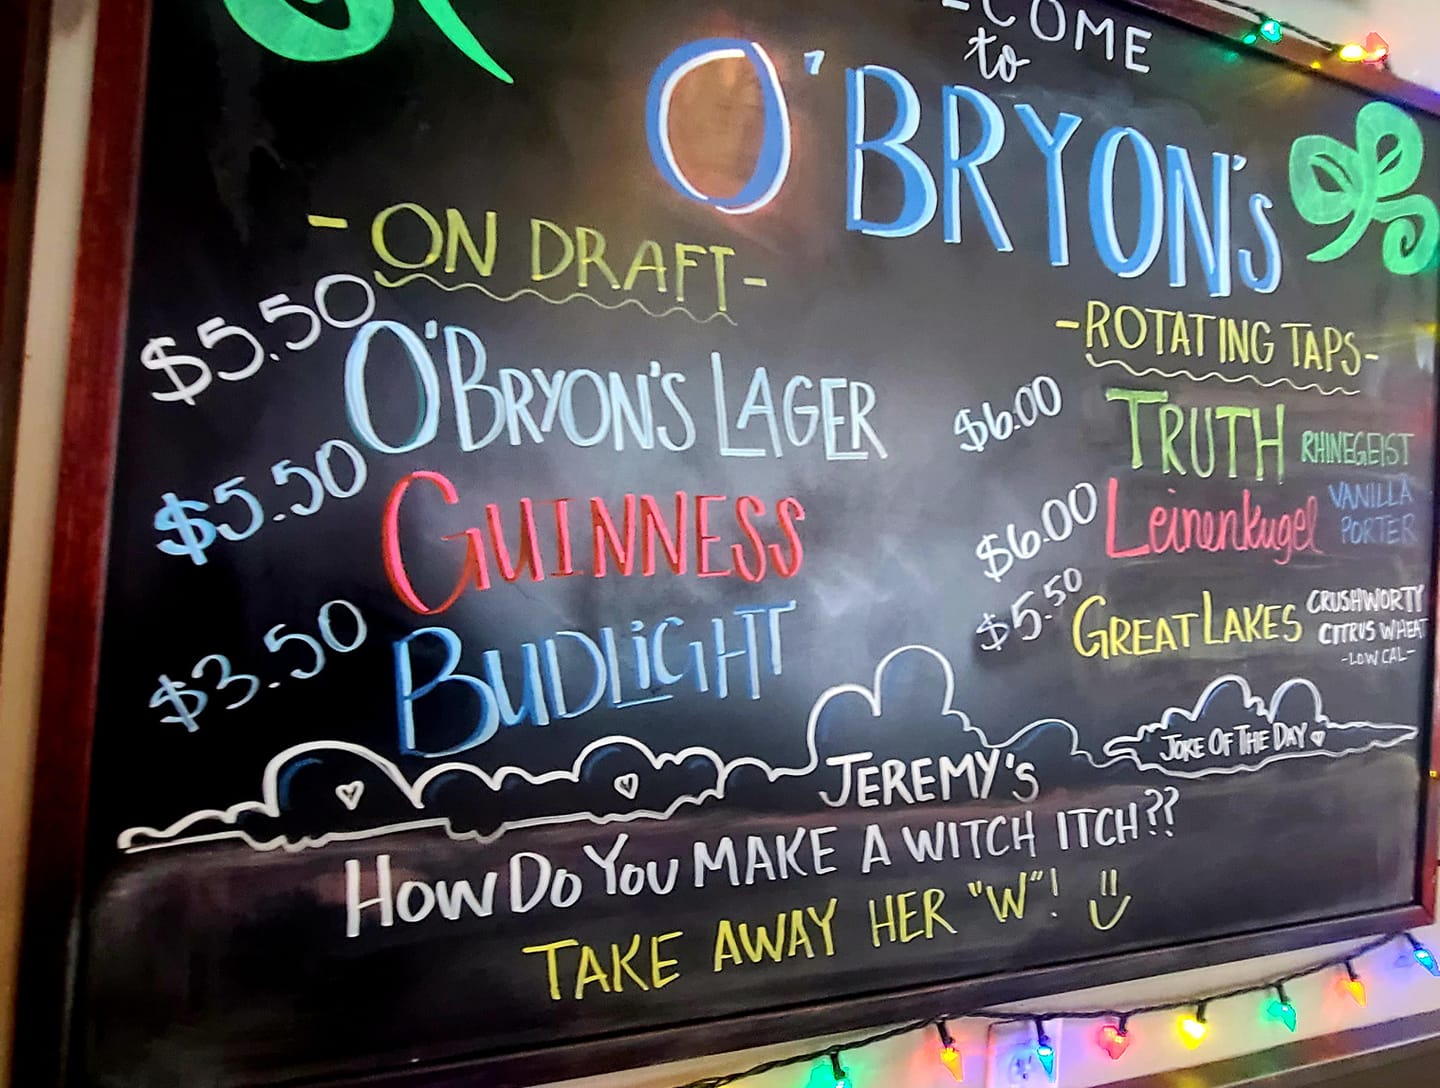 WELCOME
to
O'BRYON'S
-ON DRAFT-
$5.50 O'BRYON'S LAGER
$5.50 GUINNESS
$3.50 BUDLIGHT
-ROTATING TAPS-
$6.00 TRUTH RHINEGEIST
$6.00 Leinenkugel VANILLA
PORTER
$5.50 GREAT LAKES CRUSHWORTY
CITRUS WHEAT
-LOW CAL-
JEREMY'S
JOKE OF THE DAY
HOW DO YOU MAKE A WITCH ITCH??
TAKE AWAY HER "W"!